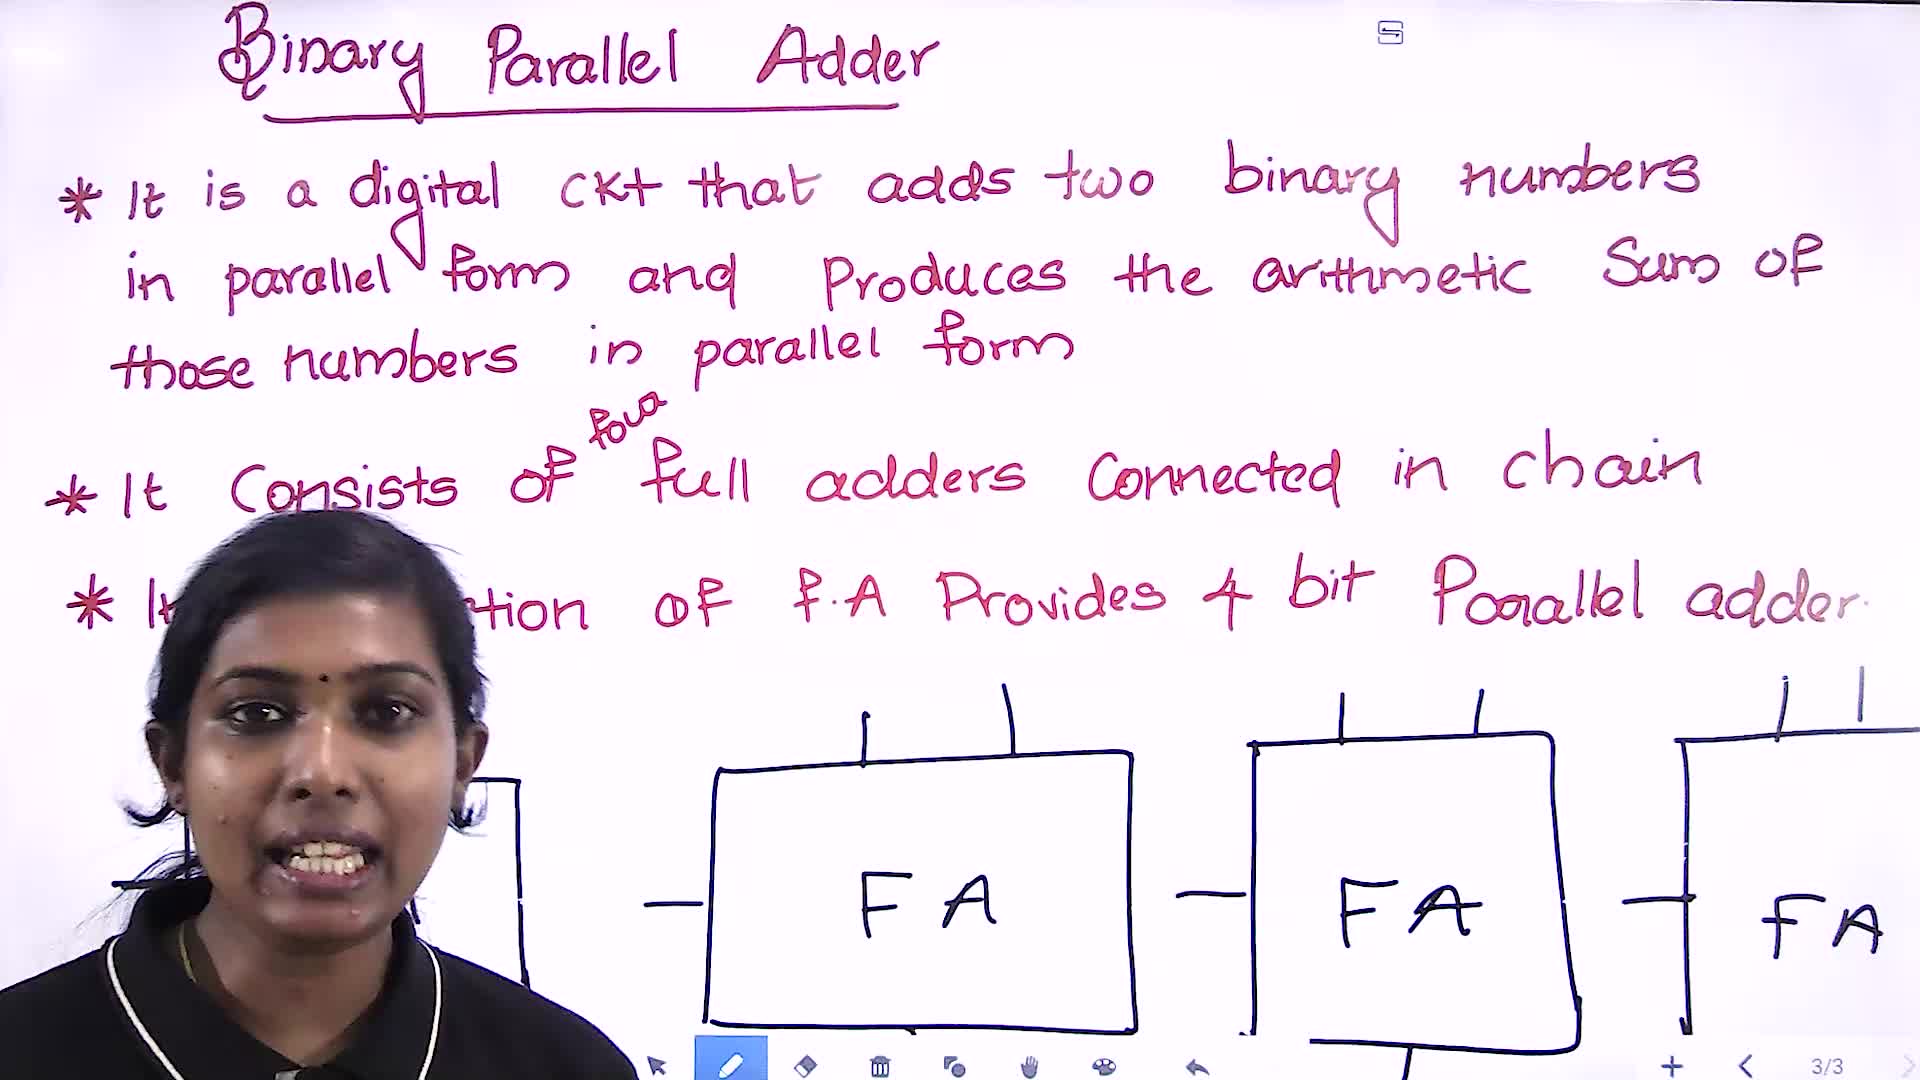 Binary Parallel Adder
* It is a digital ckt that adds two binary numbers
in parallel form and produces the arithmetic Sum of
those numbers in parallel form
four
* It Consists of full adders connected in chain
* It tion of F.A Provides 4 bit Parallel adder.
FA
FA
FA
3/3